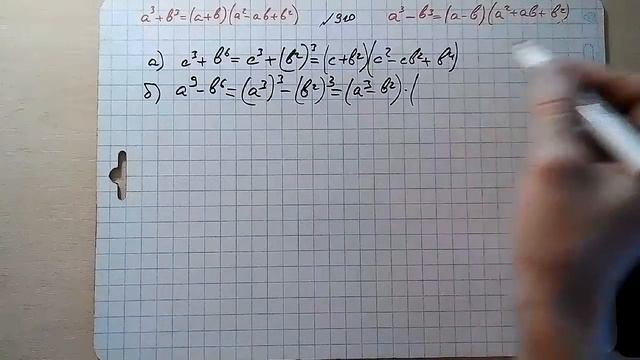 a³+b³=(a+b)(a²-ab+b²) №910 a³-b³=(a-b)(a²+ab+b²)
а) c³+b⁶=c³+(b²)³=(c+b²)(c²-cb²+b⁴)
б) a⁹-b⁶=(a³)³-(b²)³=(a³-b²)·(